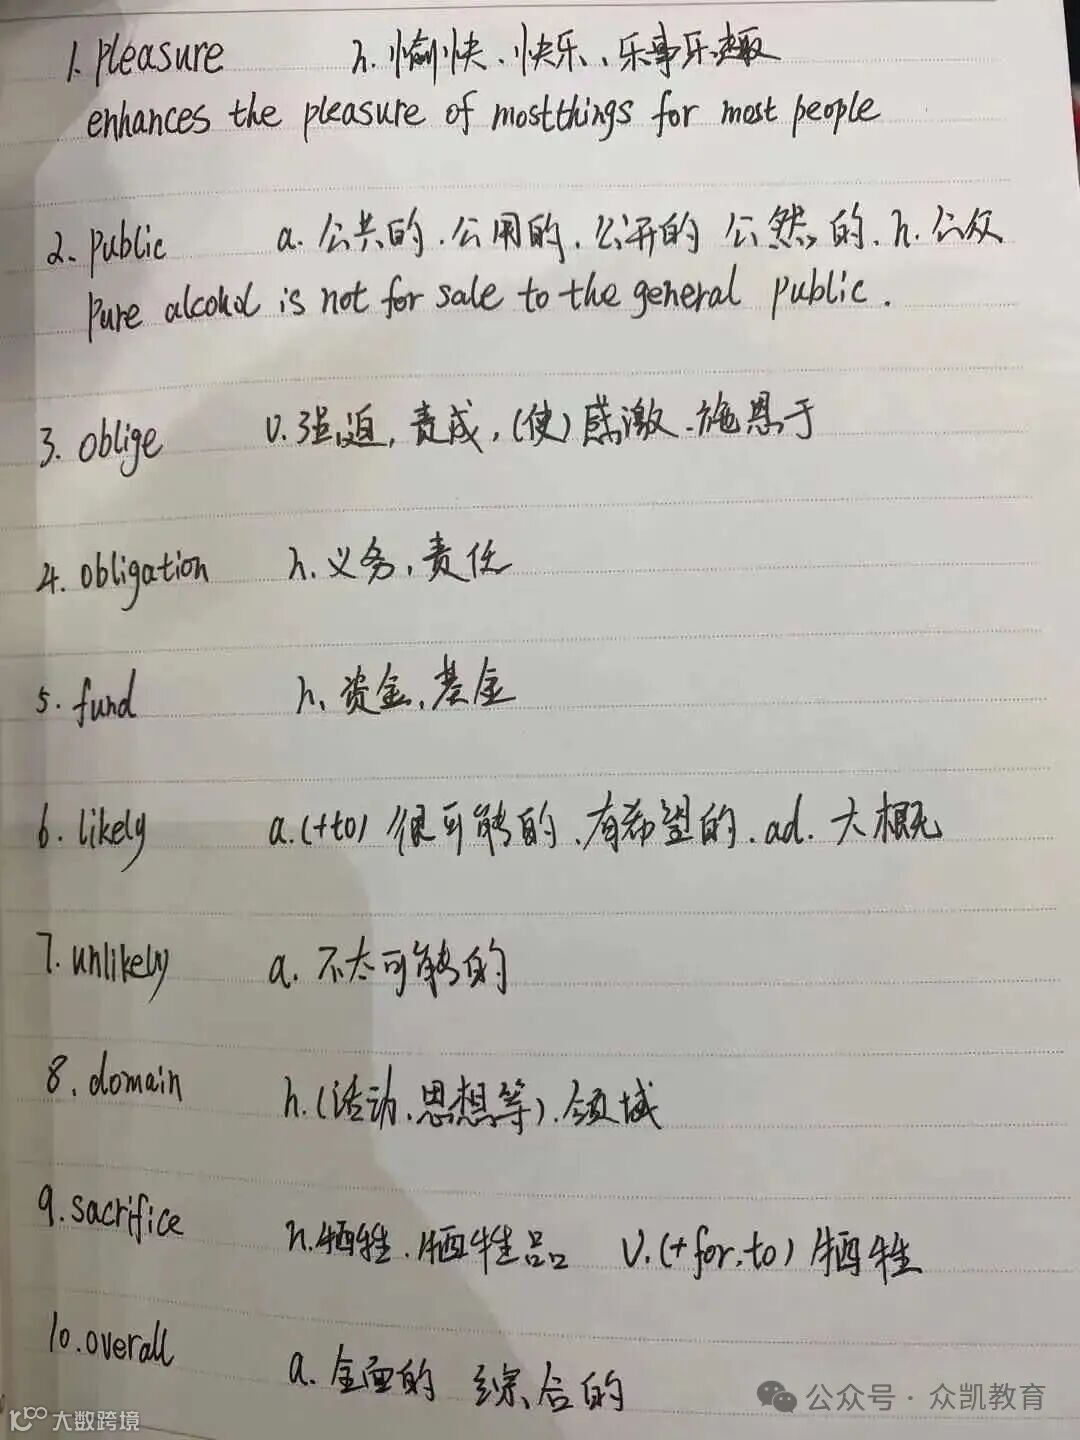 1. pleasure n. 愉快、快乐、乐事乐趣
enhances the pleasure of mostthings for most people
2. public a. 公共的、公用的、公开的 公然的、n. 公众
Pure alcohol is not for sale to the general public.
3. oblige v. 强迫, 责成, (使)感激、施恩于
4. obligation n. 义务、责任
5. fund n. 资金、基金
6. likely a. (+to) 很可能的、有希望的. ad. 大概
7. unlikely a. 不太可能的
8. domain n. (活动、思想等)、领域
9. sacrifice n. 牺牲、牺牲品 v. (+for, to) 牺牲
10. overall a. 全面的 综合的
公众号·众凯教育
大数跨境